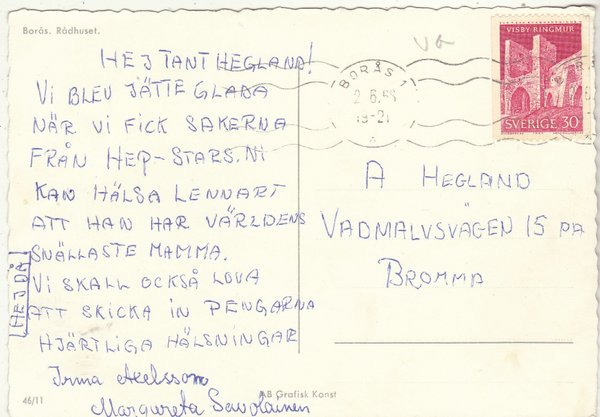 Borås. Rådhuset.
HEJ TANT HEGLAND!
VI BLEV JÄTTE GLADA
NÄR VI FICK SAKERNA
FRÅN HEP-STARS. NI
KAN HÄLSA LENNART
ATT HAN HAR VÄRLDENS
SNÄLLASTE MAMMA.
VI SKALL OCKSÅ LOVA
ATT SKICKA IN PENGARNA
HJÄRTLIGA HÄLSNINGAR
Irma Axelsson
Margureta Savolainen
HEJ DÅ
46/11
AB Grafisk Konst
BORÅS 1
2.6.
19-21
VISBY RINGMUR
SVERIGE 30
A HEGLAND
VADMALVSVÄGEN 15 
BROMMA